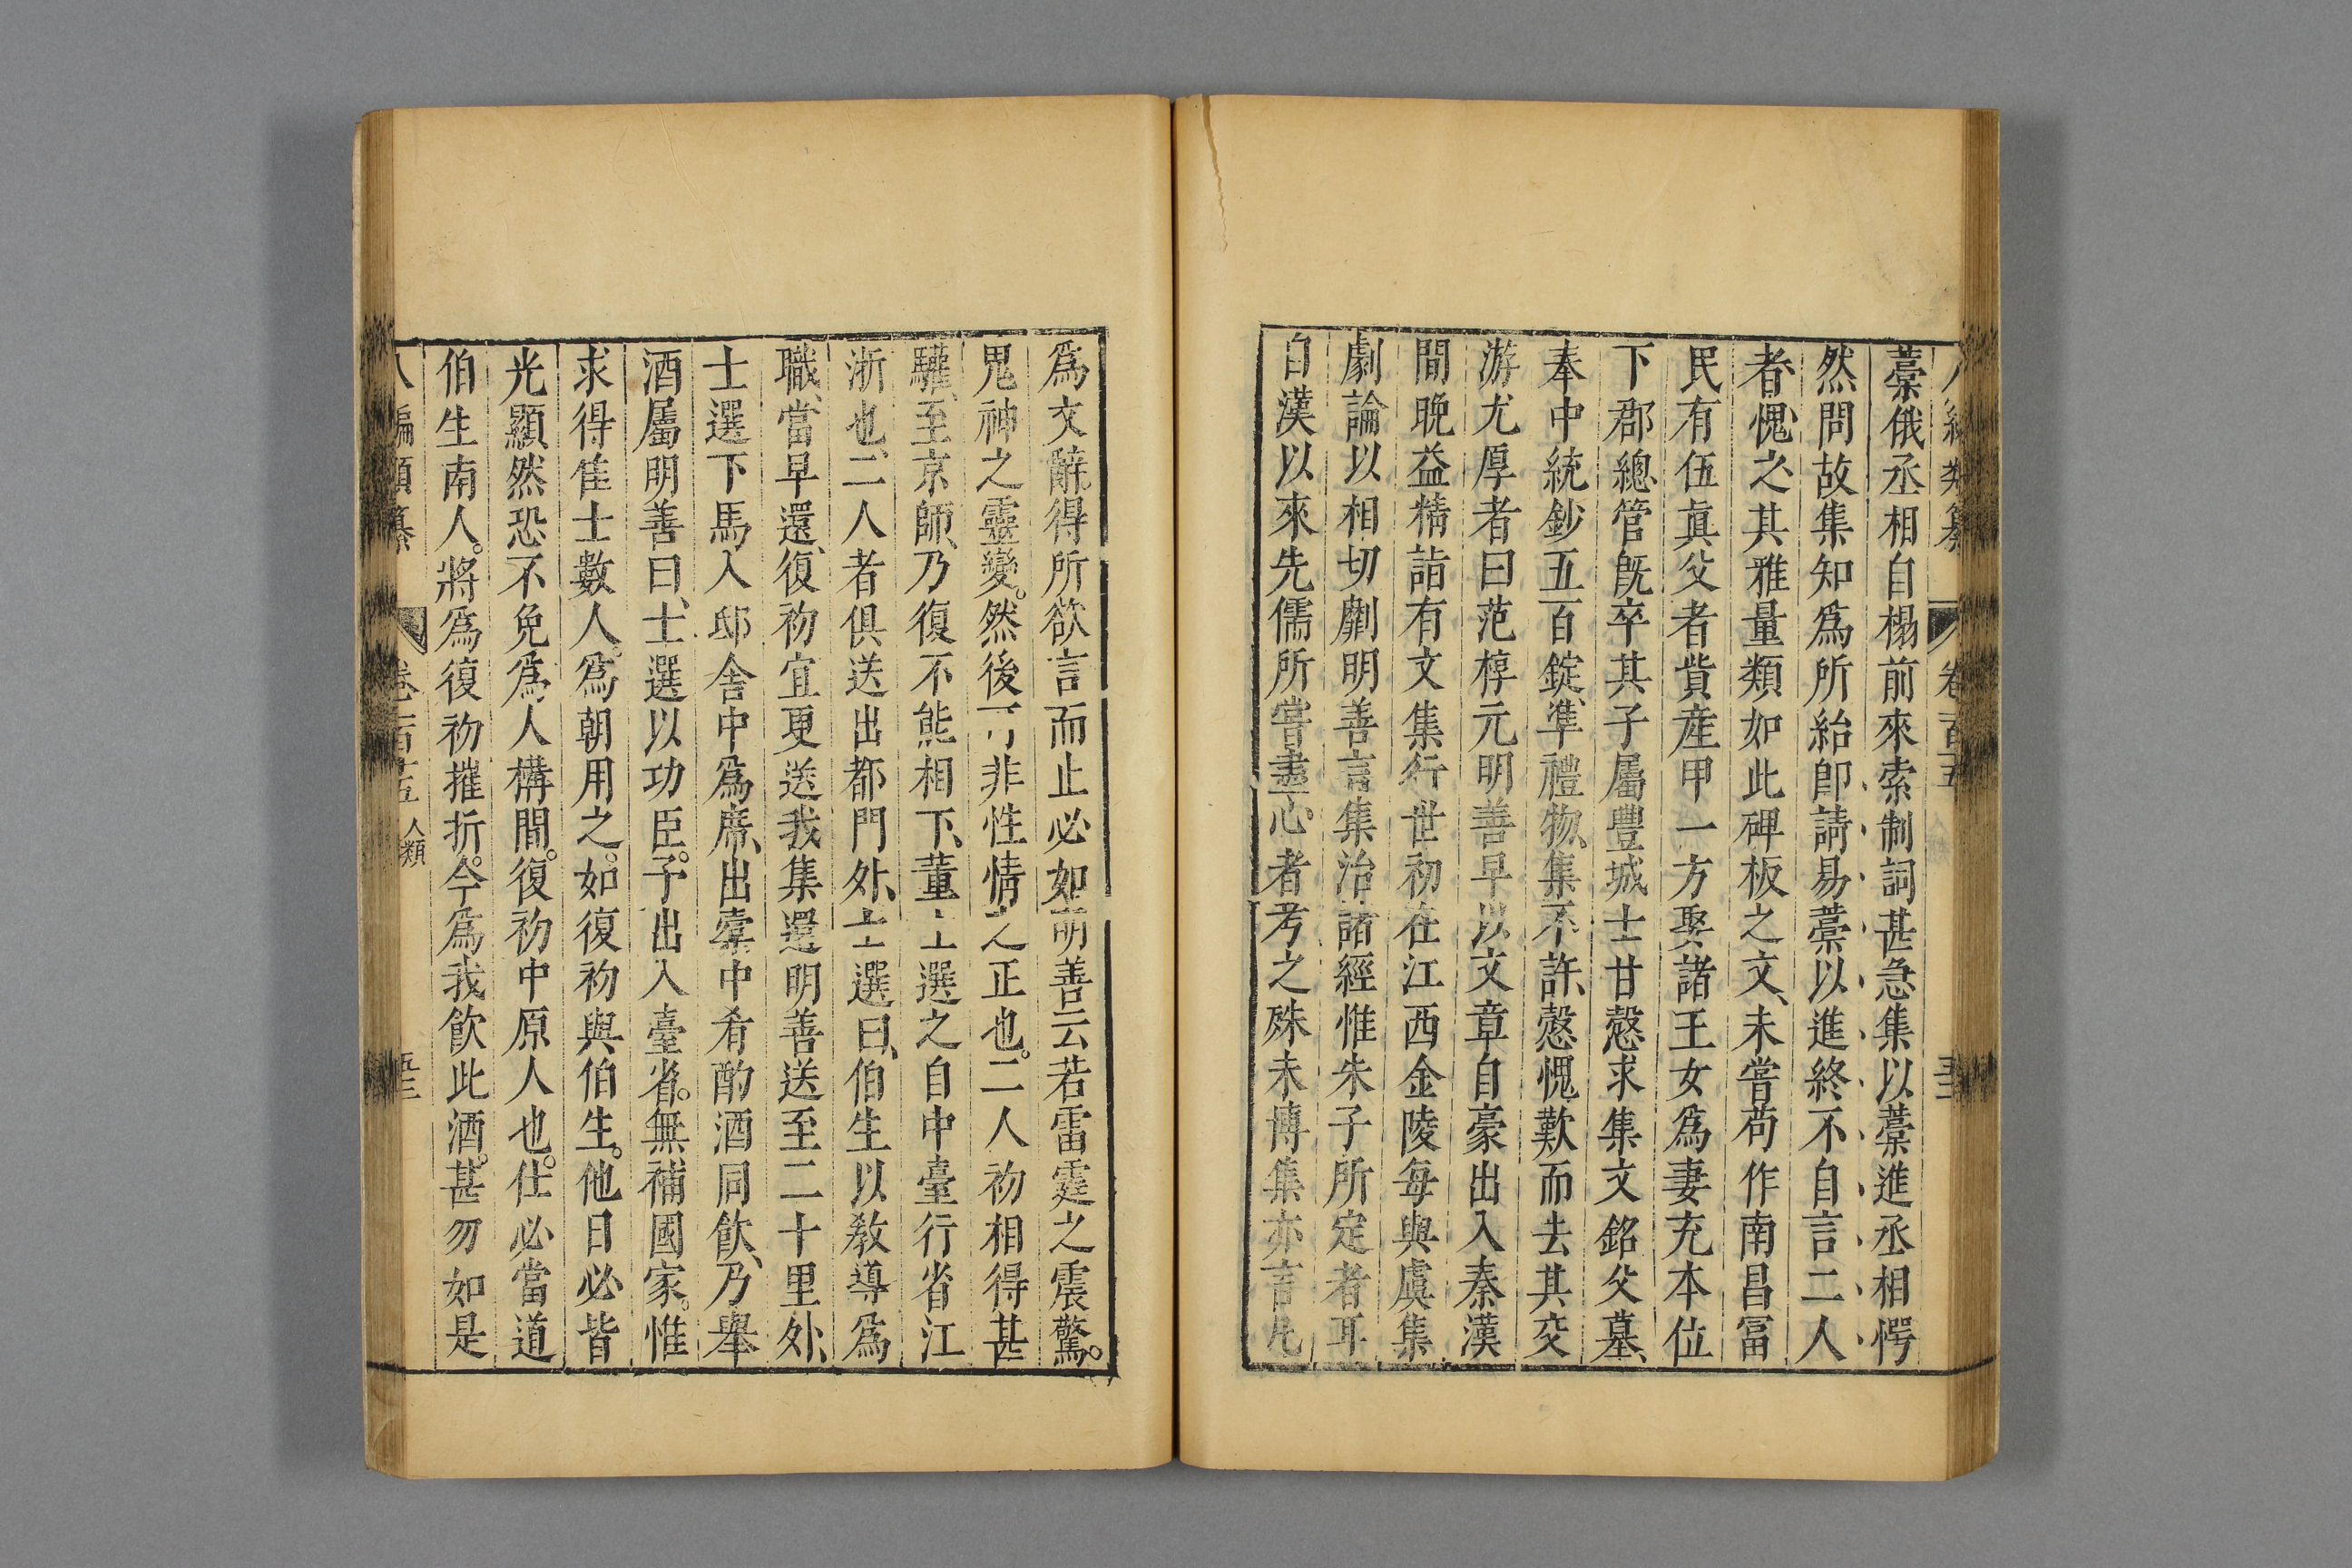 八編類纂 卷百五
藁俄丞相自榻前來索制詞甚急集以藁進丞相愕
然問故集知爲所紿卽請易藁以進終不自言二人
者愧之其雅量類如此碑板之文、未嘗苟作南昌富
民有伍眞父者貲産甲一方娶諸王女爲妻充本位
下郡總管旣卒其子屬豐城士甘愨求集文銘父墓、
奉中統鈔五百錠準禮物、集不許、愨愧歎而去其交
游尤厚者曰范梈元明善早以文章自豪出入秦漢
間晩益精詣有文集行世初在江西金陵每與虞集
劇論以相切劘明善言集治諸經惟朱子所定者耳
自漢以來先儒所嘗盡心者考之殊未博集亦言凡
爲文辭得所欲言而止必如明善云若雷霆之震驚。
鬼神之靈變。然後可非性情之正也。二人初相得甚
驩、至京師、乃復不能相下、董士選之自中臺行省江
浙也、二人者俱送出都門外、士選曰、伯生以敎導爲
職、當早還、復初宜更送我集還明善送至二十里外、
士選下馬入邸舍中爲席、出橐中肴酌酒同飮、乃舉
酒屬明善曰、士選以功臣。子出入臺省。無補國家。惟
求得佳士數人。爲朝用之。如復初與伯生。他日必皆
光顯然恐不免爲人構間。復初中原人也。仕必當道
伯生南人。將爲復初摧折。今爲我飮此酒。甚勿如是
八編類纂 卷百五 人類